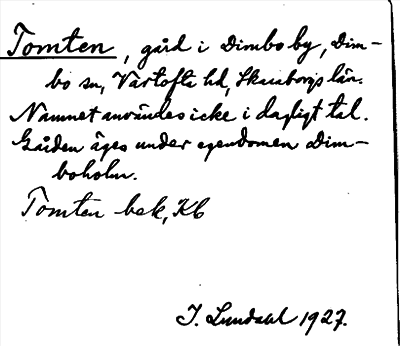 Tomten, gård i Dimbo by, Dim-
bo sn, Vartofta hd, Skaraborgs län.
Namnet användes icke i dagligt tal.
Gården äges under egendomen Dim-
boholm.
Tomten bek, Kb
J. Lundahl 1927.